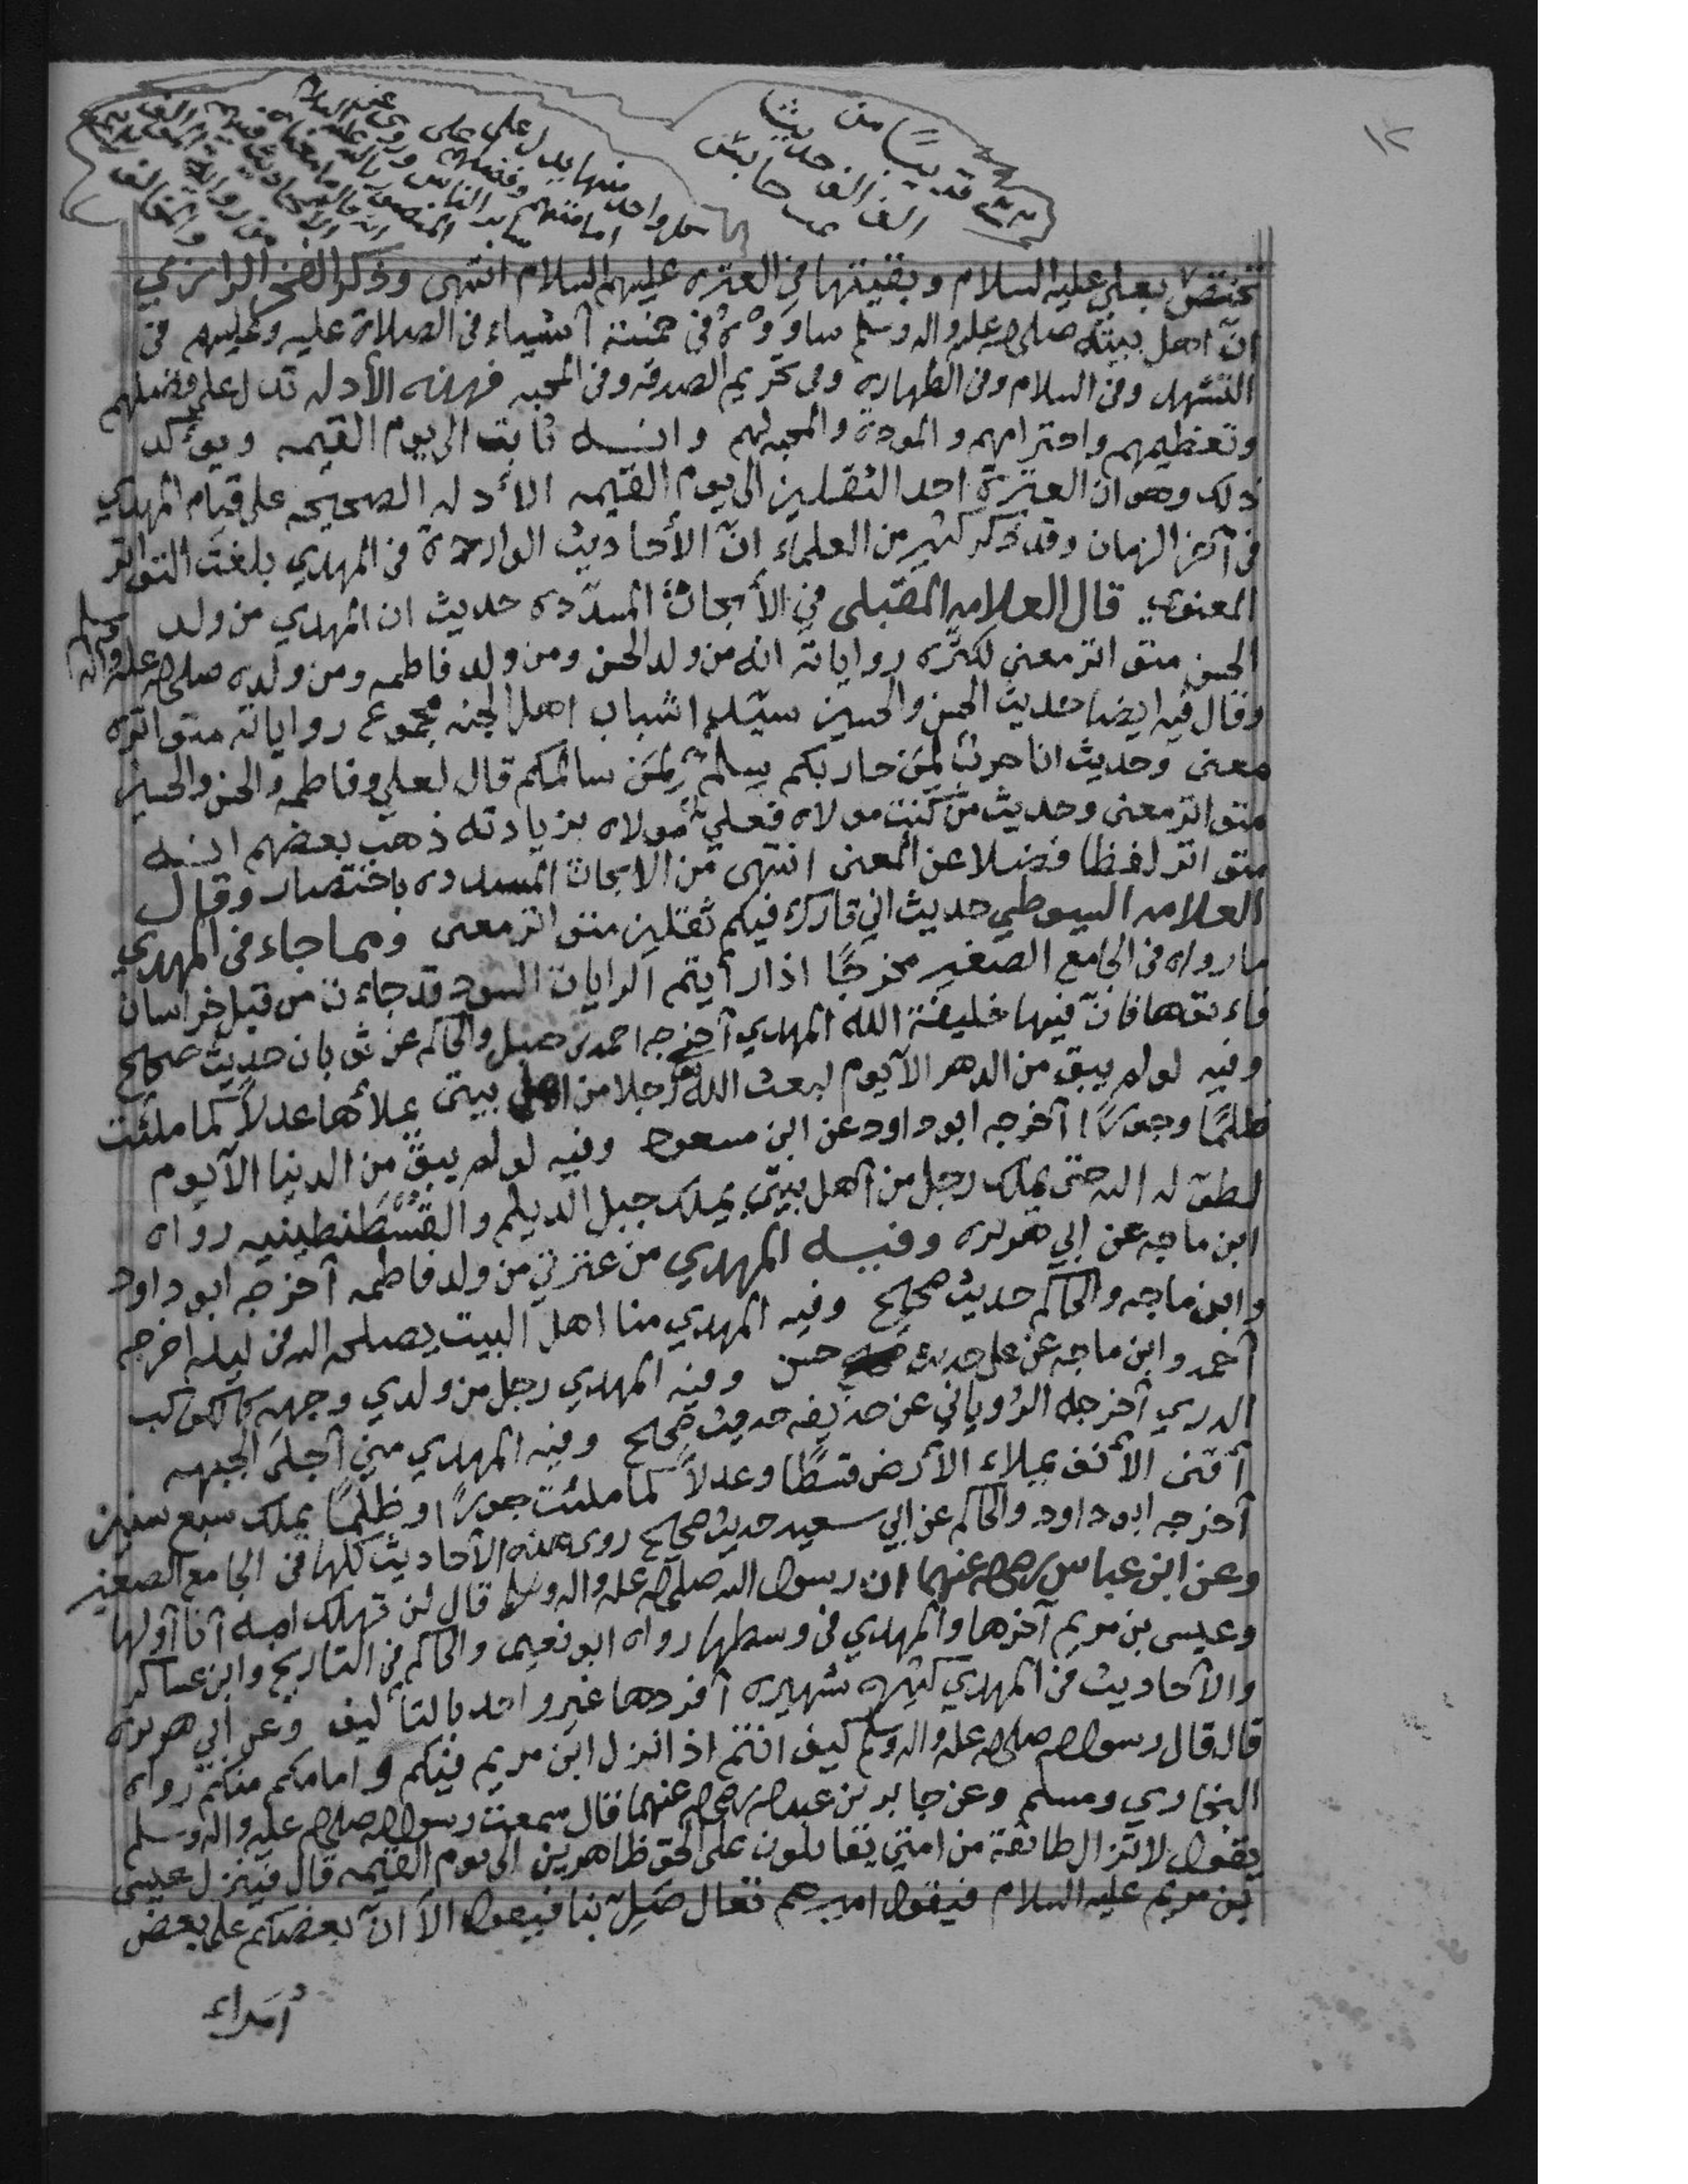 ١٢
قريبًا من
الف حديث
تختص بعلي عليه السلام وبقيتها في العتره عليهم السلام انتهى وذكر الفخر الرازي
انّ اهل بيته صلى الله عليه واله وسلم ساووه في خمسة أشياء في الصلاة عليه وعليهم في
التشهد وفي السلام وفي الطهاره وفي تحريم الصدقه وفي المحبه فهذه الأدله تدل على فضلهم
وتعظيمهم واحترامهم والمودة والمحبه لهم وانه ثابت الى يوم القيمه ويؤكد
ذلك وهو ان العترة احد الثقلين الى يوم القيمه الأدله الصحيحه على قيام المهدي
في آخر الزمان وقد ذكر كثير من العلماء انّ الأحاديث الواردة في المهدي بلغت التواتر
المعنوي قال العلامه المقبلي في الأبحاث المسدّده حديث ان المهدي من ولد
الحسن متواتر معنى لكثره رواياته انه من ولد الحسن ومن ولد فاطمه ومن ولده صلى الله عليه واله وسلم
وقال فيه ايضا حديث الحسن والحسين سيّدا شباب اهل الجنه مجموع رواياته متواتره
معنى وحديث انا حرب لمن حاربكم سلم لمن سالمكم قال لعلي وفاطمه والحسن والحسين
متواتر معنى وحديث من كنت مولاه فعلي مولاه بزيادته ذهب بعضهم انه
متواتر لفظا فضلا عن المعنى انتهى من الابحاث المسدده باختصار وقال
العلامه السيوطي حديث اني تارك فيكم ثقلين متواتر معنى ومما جاء في المهدي
ما رواه في الجامع الصغير مخرجًا اذا رأيتم الرايات السود قد جاءت من قبل خراسان
فاءتوها فانّ فيها خليفة الله المهدي أخرجه احمد بن حنبل والحاكم عن ثوبان حديث صحيح
وفيه لو لم يبق من الدهر الآ يوم لبعث الله رجلا من اهل بيتي يملأها عدلاً كما ملئت
ظلمًا وجورًا أخرجه ابو داود عن ابن مسعود وفيه لو لم يبق من الدنيا الآ يوم
لطوّله الله حتى يملك رجل من أهل بيتي يملك جبل الديلم والقسطنطينيه رواه
ابن ماجه عن ابي هريره وفيه المهدي من عترتي من ولد فاطمه أخرجه ابو داود
وابن ماجه والحاكم حديث صحيح وفيه المهدي منا اهل البيت يصلحه الله في ليله اخرجه
أحمد وابن ماجه عن علي حديث حسن وفيه المهدي رجل من ولدي وجهه كالكوكب
الدري أخرجه الرؤياني عن حذيفه حديث صحيح وفيه المهدي مني أجلى الجبهه
أقنى الأنف يملاء الأرض قسطًا وعدلاً كما ملئت جورًا وظلمًا يملك سبع سنين
أخرجه ابو داود والحاكم عن ابي سعيد حديث صحيح روى هذه الأحاديث كلها في الجامع الصغير
وعن ابن عباس رضي الله عنهما ان رسول الله صلى الله عليه واله وسلم قال لن تهلك امه أنا أولها
وعيسى بن مريم آخرها والمهدي في وسطها رواه ابو نعيم والحاكم في التاريخ وابن عساكر
والأحاديث في المهدي كثيره شهيره أفردها غير واحد بالتأليف وعن ابي هريره
قال قال رسول الله صلى الله عليه واله وسلم كيف انتم اذا نزل ابن مريم فيكم وامامكم منكم رواه
البخاري ومسلم وعن جابر بن عبد الله رضي الله عنهما قال سمعت رسول الله صلى الله عليه واله وسلم
يقول لا تزال طائفة من امتي يقاتلون على الحق ظاهرين الى يوم القيمه قال فينزل عيسى
بن مريم عليه السلام فيقول اميرهم تعال صلّ بنا فيقول الآ انّ بعضكم على بعض
أمراء